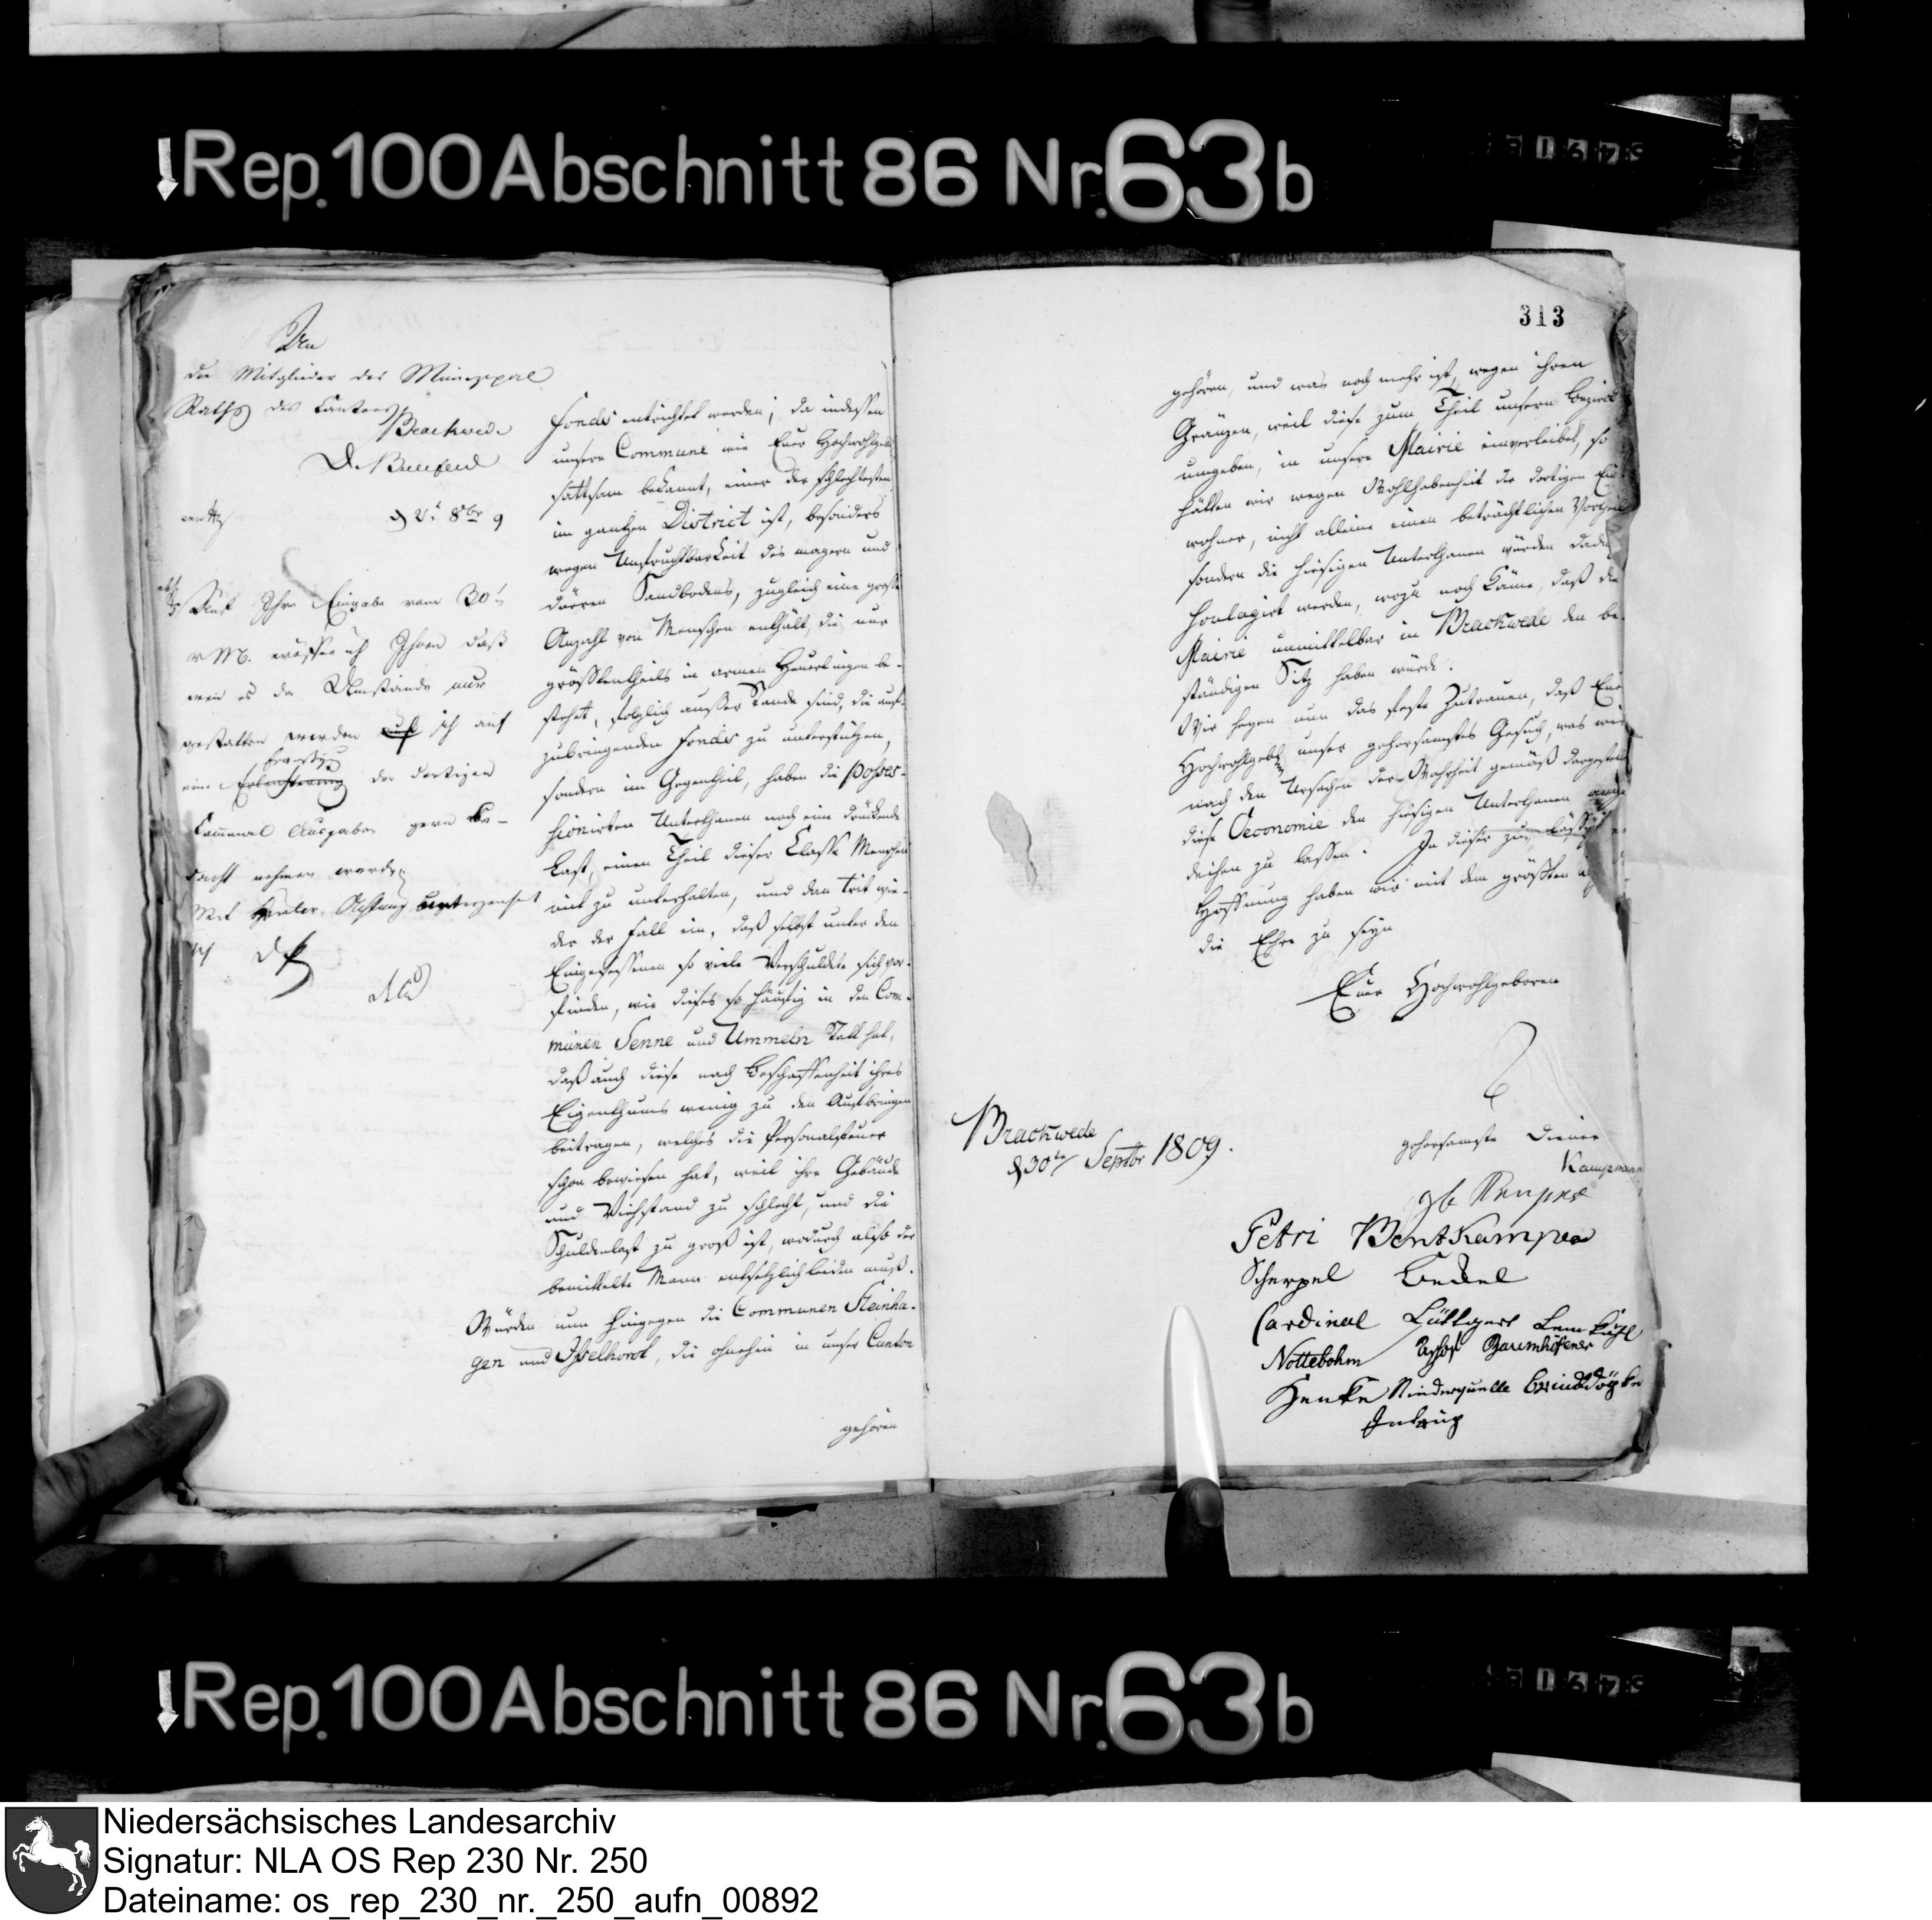 Rep. 100 Abschnitt 86 Nr. 63b
An
die Mitglieder des Municipal
Raths des Cantons
Brackwede
D. Bielefeld
d 2t 8br 9
Auf Ihre Eingabe vom 30t
v M. eröffne ich Ihnen daß
wenn es die Umstände nur
gestatten werden ich auf
eine Ermäßig der dortigen
Communal Ausgaben gern Be-
dacht nehmen werde.
Mit
Fonds entrichtet werden; da indessen
unsere Commune wie Euer Hochwohlgeb
sattsam bekannt, einer der schlechtesten
im gantzen District ist, besonders
wegen Unfruchtbarkeit des magern und
dürren Sandbodens, zugleich eine große
Anzahl von Menschen enthält, die nur
größtentheils in armen Heuerlingen be-
stehet, folglich außer Stande sind, die auf-
zubringenden Fonds zu unterstützen,
sondern im Gegentheil, haben die posses-
sionirten Unterthanen noch eine drückende
Last, einen Theil dieser Classe Menschen
mit zu unterhalten, und dan trit wie-
der der Fall ein, daß selbst unter den
Eingesessenen so viele Verschuldete sich vor-
finden, wie dieses so häufig in den Com-
munen Senne und Ummeln Statt hat,
daß auch diese nach Beschaffenheit ihres
Eigenthums wenig zu den Aufbringen
beitragen, welches die Personalsteuer
schon bewiesen hat, weil ihre Gebäude
und Viehstand zu schlecht, und die
Schuldenlast zu groß ist, wodurch also der
bemittelte Mann entsetzlich leiden muß.
Würden nun hingegen die Communen Steinha-
gen und Isselhorst, die ohnehin in unser Canton
gehören
313
gehören, und was noch mehr ist, wegen ihren
Gränzen, weil diese zum Theil unsern Bezirk
umgeben, in unsere Mairie einverleibet, so
hätten wir wegen Wohlhabenheit der dortigen Ein
wohner, nicht alleine einen beträchtlichen Vortheil
sondern die hiesigen Unterthanen würden dadu
soulagirt werden, wozu noch käme, daß die
Mairie unmittelbar in Brackwede den be-
ständigen Sitz haben würde.
Wir hegen nun das feste Zutrauen, daß Eue
Hochwohlgeb unser gehorsamstes Gesuch, was wir
nach den Ursachen der Wahrheit gemäß dargestellt
diese Oeconomie den hiesigen Unterthanen ange
deihen zu lassen. In dieser
Hoffnung haben wir mit dem größten
die Ehre zu seyn
Euer Hochwohlgeboren
Brackwede
d 30te Septbr 1809.
gehorsamste Diener
Kampmann
Petri Bentkamper
Scherpel
Cardinal Lüttgert Lemkühl
Nottebohm Baumhöfener
Henke Niederquelle
Intrup
Rep. 100 Abschnitt 86 Nr. 63b
Niedersächsisches Landesarchiv
Signatur: NLA OS Rep 230 Nr. 250
Dateiname: os_rep_230_nr._250_aufn_00892